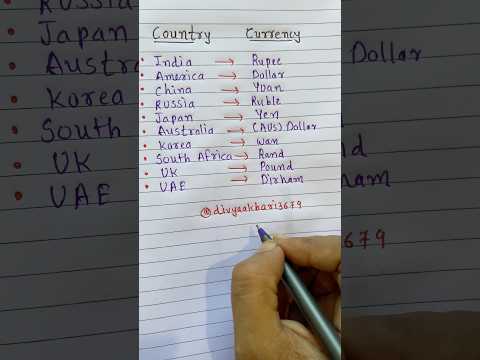 Country Currency
India → Rupee
America → Dollar
China → Yuan
Russia → Ruble
Japan → Yen
Australia → (AUS) Dollar
Korea → Wan
South Africa → Rand
UK → Pound
UAE → Dirham
@divyaakhari3679
Russia
Japan
Austra Dollar
Korea
South
UK nd
UAE ham
679